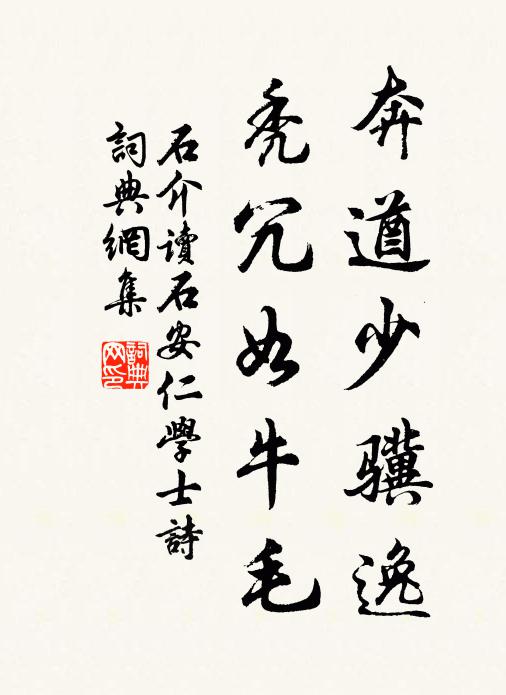 奔遒少骥逸
秃冗如牛毛
石介读石安仁學士詩
詞典網集
詞典网印